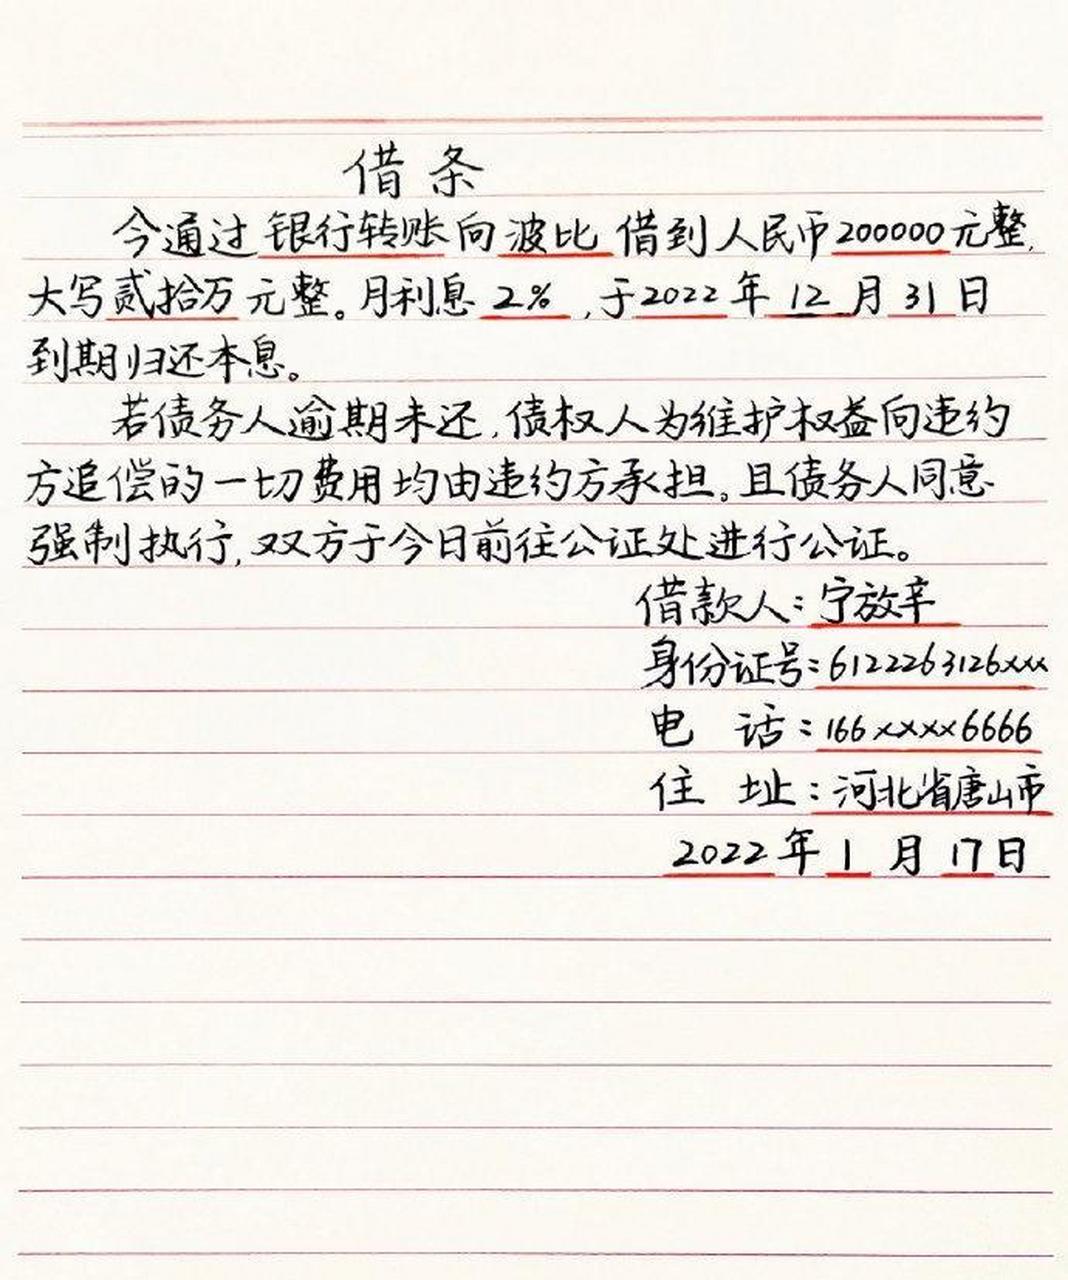 借条
今通过银行转账向波比借到人民币200000元整,
大写贰拾万元整。月利息2%,于2022年12月31日
到期归还本息。
若债务人逾期未还,债权人为维护权益向违约
方追偿的一切费用均由违约方承担。且债务人同意
强制执行,双方于今日前往公证处进行公证。
借款人:宁放辛
身份证号:6122263126xxx
电 话:166xxxx6666
住 址:河北省唐山市
2022年1月17日